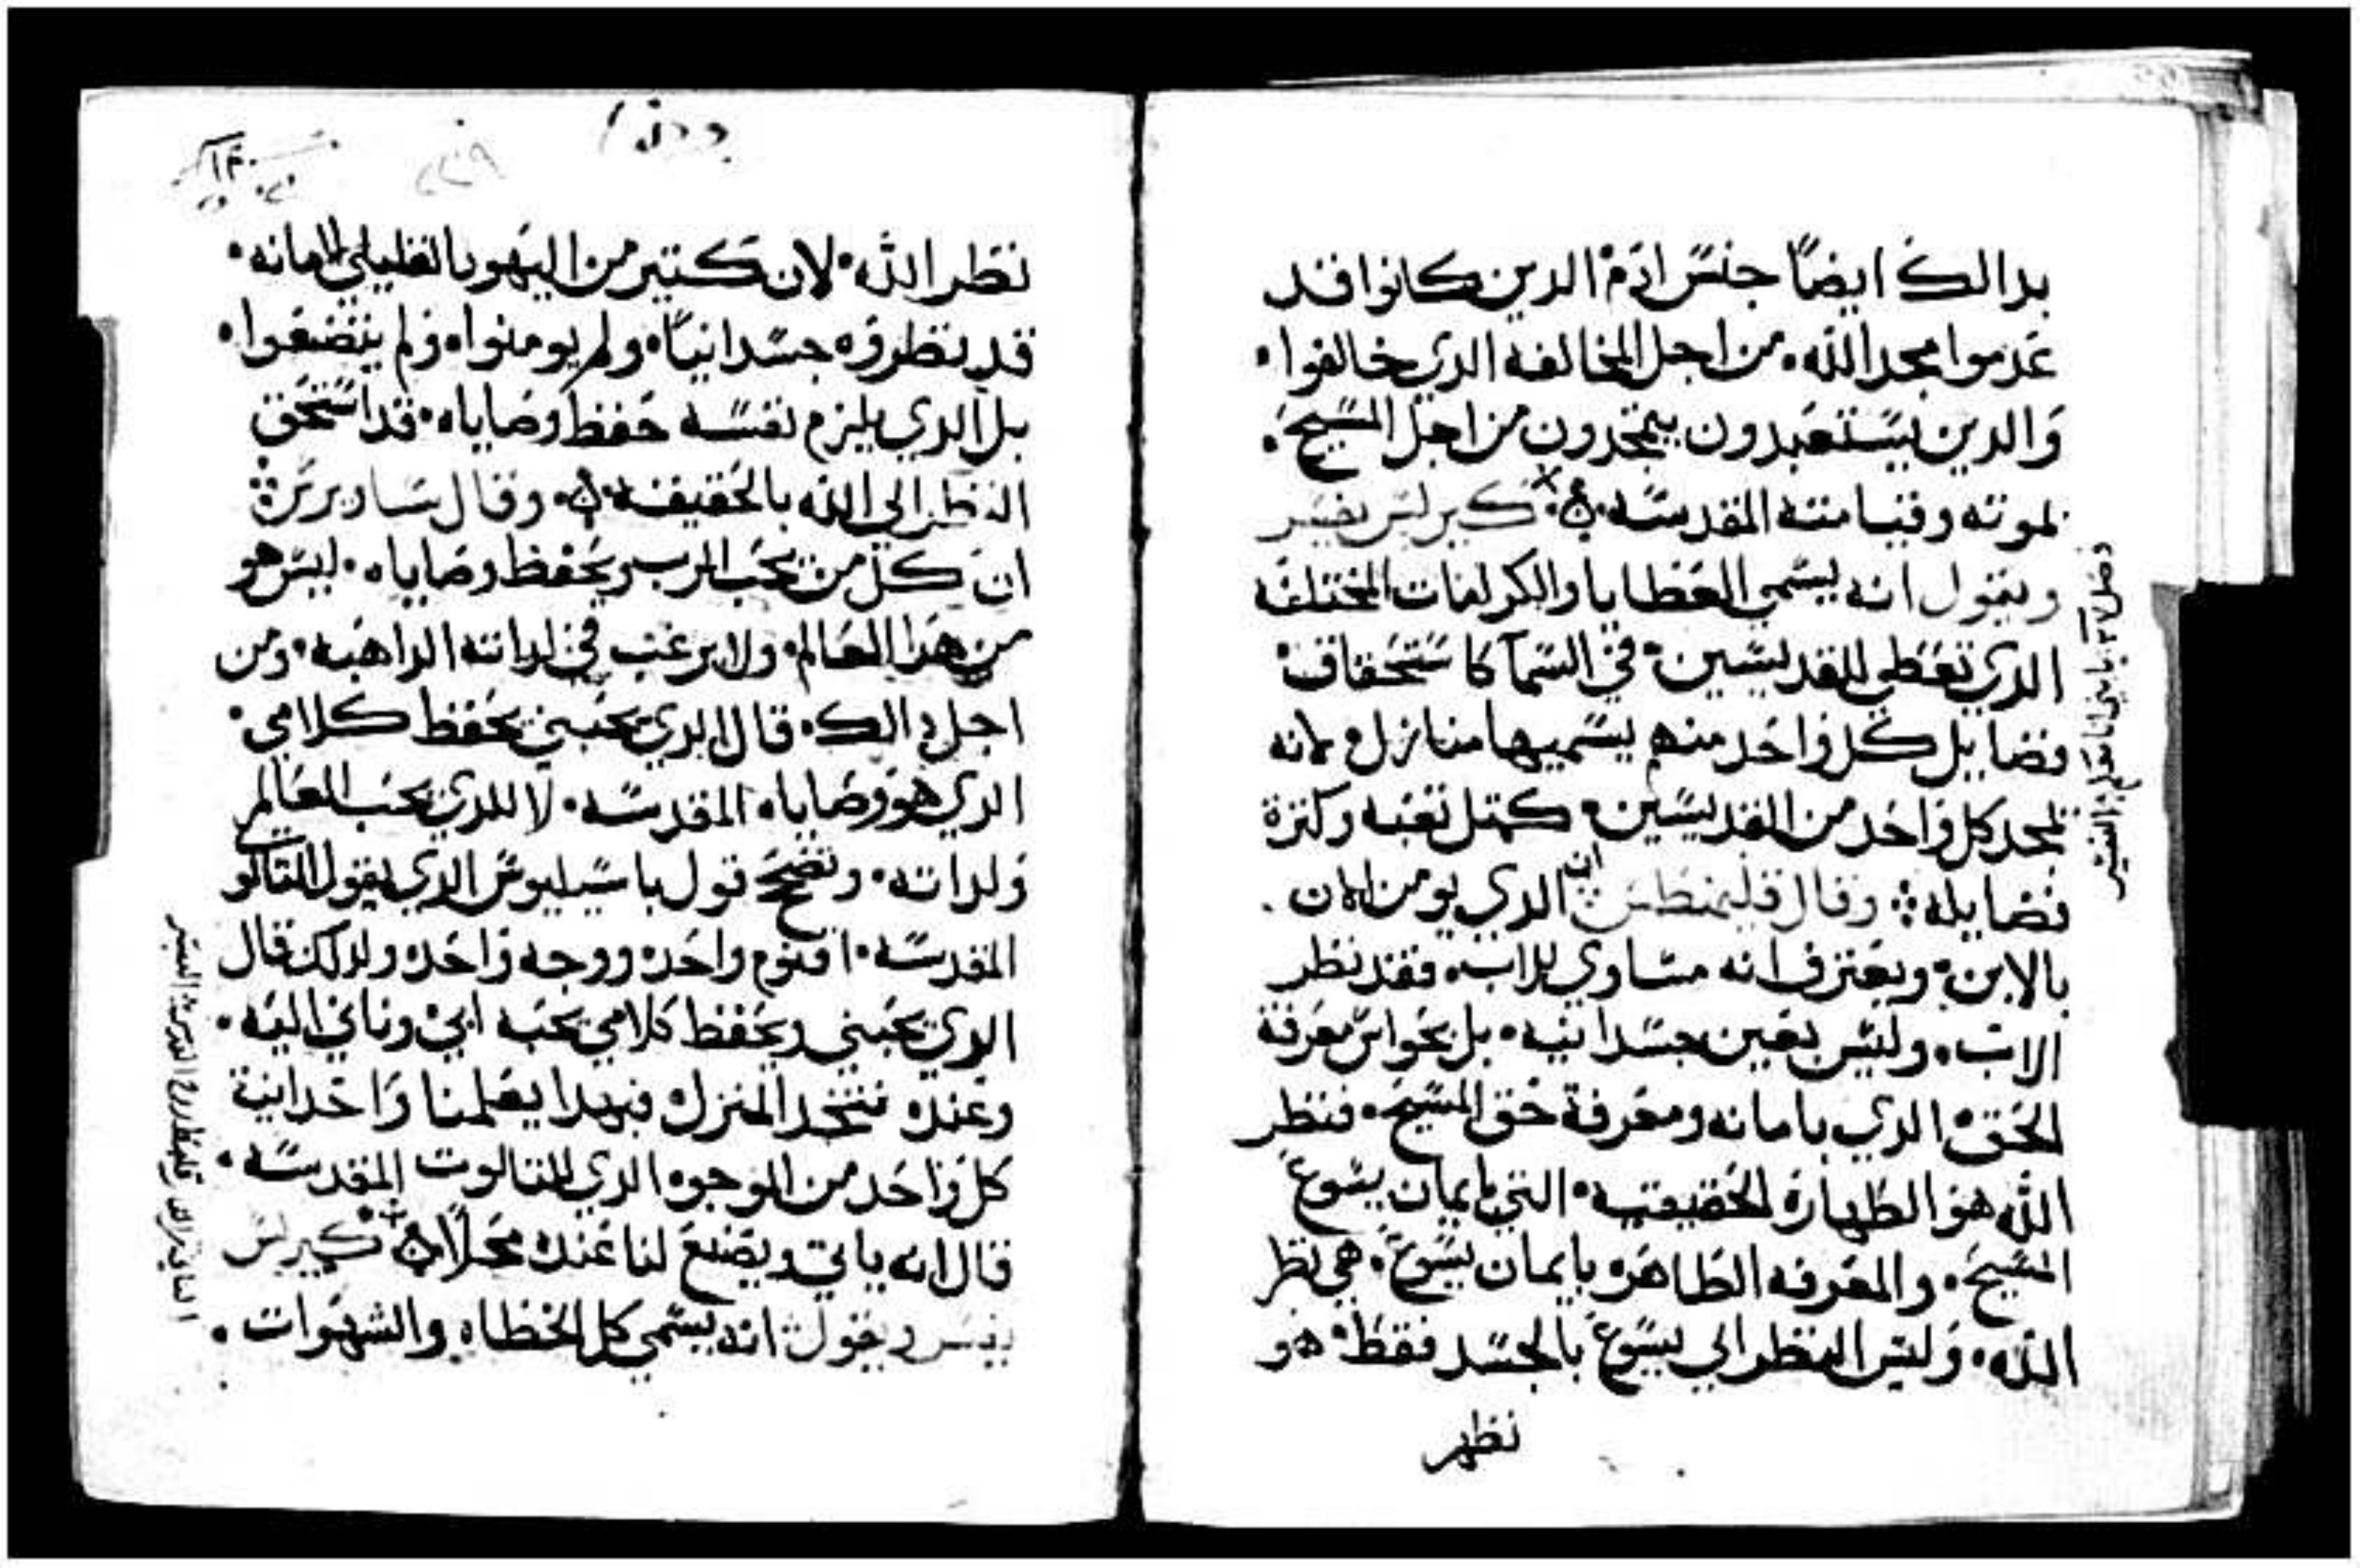 بدالك ايضًا جنس ادم الدين كانوا قد
عدموا مجد الله. من اجل المخالفه الدي خالفوا.
والدين يستعبدون يتمجدون من اجل المسيح.
لموته وقيامته المقدسه. كيرلس يفسر
ويقول انه يسمي العطايا والكرامات المختلفه
الدي تعطي للقديسين. في السما كاستحقاق
فضايل كل واحد منهم يسميها منازل. لانه
يمجد كل واحد من القديسين. كمتل تعبه وكترة
فضايله. وقال قليمنطس ان الدي يومن الان.
بالابن. ويعترف انه مساوي للاب. فقد نظر
الاب. وليس بعين جسدانيه. بل بحواس معرفة
الحق. الدي بامانه ومعرفة حق المسيح. فنظر
الله هو الطهارة الحقيقيه. التي بايمان يسوع
المسيح. والمعرفه الطاهره بايمان يسوع. هي نظر
الله. وليس النظر الي يسوع بالجسد فقط. هو
نظر
نظر الله. لان كتير من اليهود القليلي الامانه.
قد نظروه جسدانيًا. ولم يومنوا. ولم يتضعوا.
بل الدي يلزم نفسه حفظ وصاياه. قد استحق
النظر الي الله بالحقيقه. وقال ساويرس
ان كل من يحب الرب ويحفظ وصاياه. ليس هو
من هدا العالم. ولا يرغب في لداته الداهبه. ومن
اجل دالك. قال الدي يحبني يحفظ كلامي.
الدي هو وصاياه المقدسه. لا للدي يحب العالم
ولداته. وتصحح قول باسيليوس الدي يقول التالوت
المقدسه. اقنوم واحده ووجه واحده ولدلك قال
الدي يحبني ويحفظ كلامي يحبه ابي وناتي اليه.
وعنده نتخد المنزل. فبهدا يعلمنا واحدانية
كل واحد من الوجوه الدي للتالوت المقدسه.
قال انه ياتي ويصنع لنا عنده محلًا. كيرلس
يفسر ويقول انه يسمي كل الخطاه والشهوات.